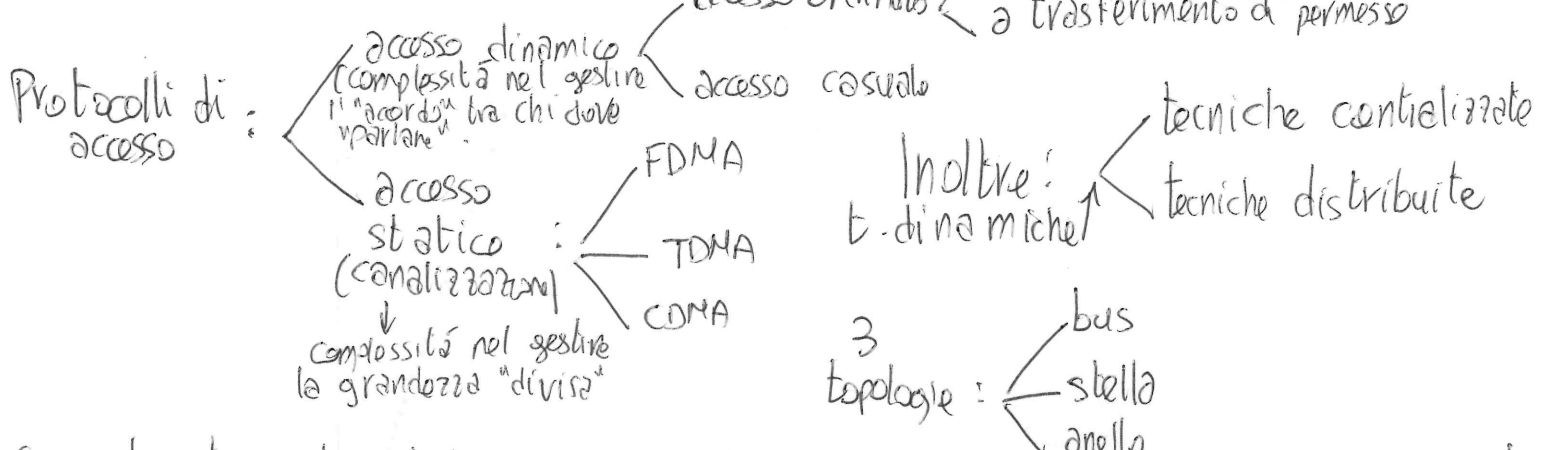 a trasferimento di permesso
Protocolli di :
accesso
accesso dinamico
(complessità nel gestire
l'"acordo" tra chi dove
"parlare".
accesso casuale
accesso
statico :
(canalizzazione)
↓
complessità nel gestire
la grandezza "divisa"
FDMA
TDMA
CDMA
Inoltre:
t. dinamiche
tecniche centralizzate
tecniche distribuite
3
topologie :
bus
stella
anello